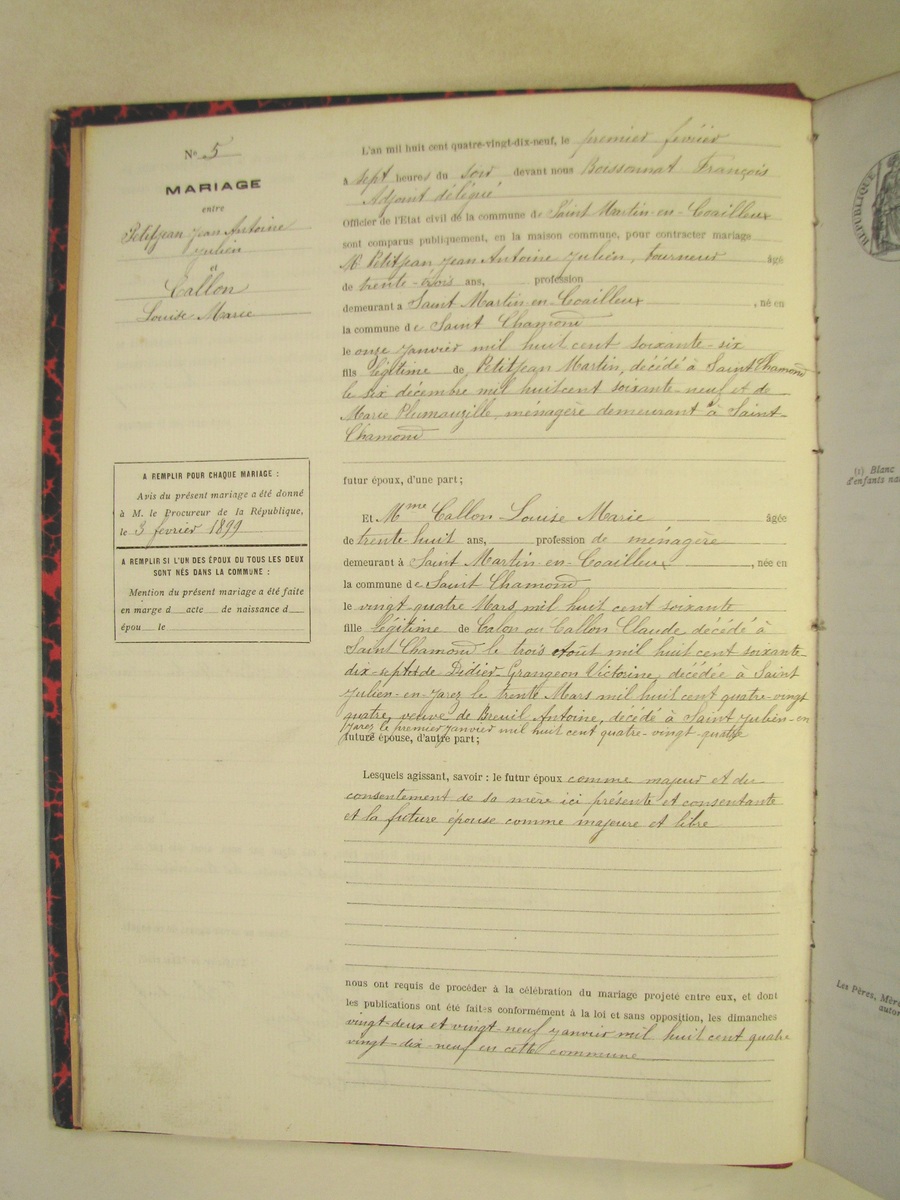 N° 5
MARIAGE
entre
Petitjean Jean Antoine
Julien
et
Callon
Louise Marie
A REMPLIR POUR CHAQUE MARIAGE :
Avis du présent mariage a été donné
à M. le Procureur de la République,
le 3 fevrier 1899
A REMPLIR SI L'UN DES ÉPOUX OU TOUS LES DEUX
SONT NÉS DANS LA COMMUNE :
Mention du présent mariage a été faite
en marge d acte de naissance d
épou le
L'an mil huit cent quatre-vingt-dix-neuf, le premier fevrier
à sept heures du soir devant nous Boissonnat François
Adjoint délégué
Officier de l'Etat civil de la commune de Saint Martin-en-Coailleux
sont comparus publiquement, en la maison commune, pour contracter mariage
M. Petitjean Jean Antoine Julien, tourneur âgé
de trente-trois ans, profession
demeurant à Saint Martin-en-Coailleux, né en
la commune de Saint Chamond
le onze janvier mil huit cent soixante-six
fils légitime de Petitjean Martin, décédé à Saint Chamond
le six décembre mil huit cent soixante-neuf et de
Marie ménagère demeurant à Saint-
Chamond
futur époux, d'une part ;
Et Mme Callon Louise Marie âgée
de trente-huit ans, profession de ménagère
demeurant à Saint Martin-en-Coailleux, née en
la commune de Saint Chamond
le vingt quatre Mars mil huit cent soixante
fille légitime de Calon ou Callon Claude décédé à
Saint Chamond le trois Août mil huit cent soixante-
dix-sept et de Didier-Grangeon Victorine, décédée à Saint
Julien-en-Jarez le trente Mars mil huit cent quatre-vingt
quatre, veuve de Breuil Antoine, décédé à Saint Julien-en
Jarez le premier janvier mil huit cent quatre-vingt quatre
future épouse, d'autre part ;
Lesquels agissant, savoir : le futur époux comme majeur et du
consentement de sa mère ici présente et consentante
et la future épouse comme majeure et libre
nous ont requis de procéder à la célébration du mariage projeté entre eux, et dont
les publications ont été faites conformément à la loi et sans opposition, les dimanches
vingt-deux et vingt-neuf janvier mil huit cent quatre
vingt-dix-neuf en cette commune
RÉPUBLIQUE
(1) Blanc
d'enfants na
Les Pères, Mère
autor